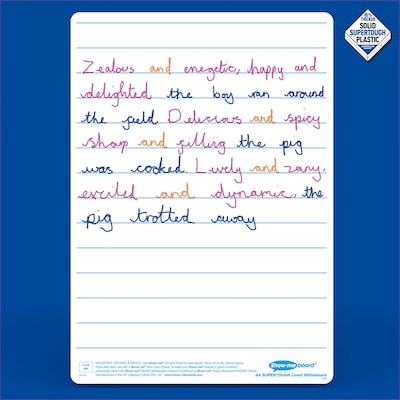 THICKER
SOLID
SUPERTOUGH
PLASTIC
Zealous and enegetic, happy and
delighted the boy ran around
the feild. Delicious and spicy
sharp and filling the pig
was cooked. Lively and zany,
excited and dynamic, the
pig trotted away
Show-me board
A4 SUPERTOUGH Lined Whiteboard